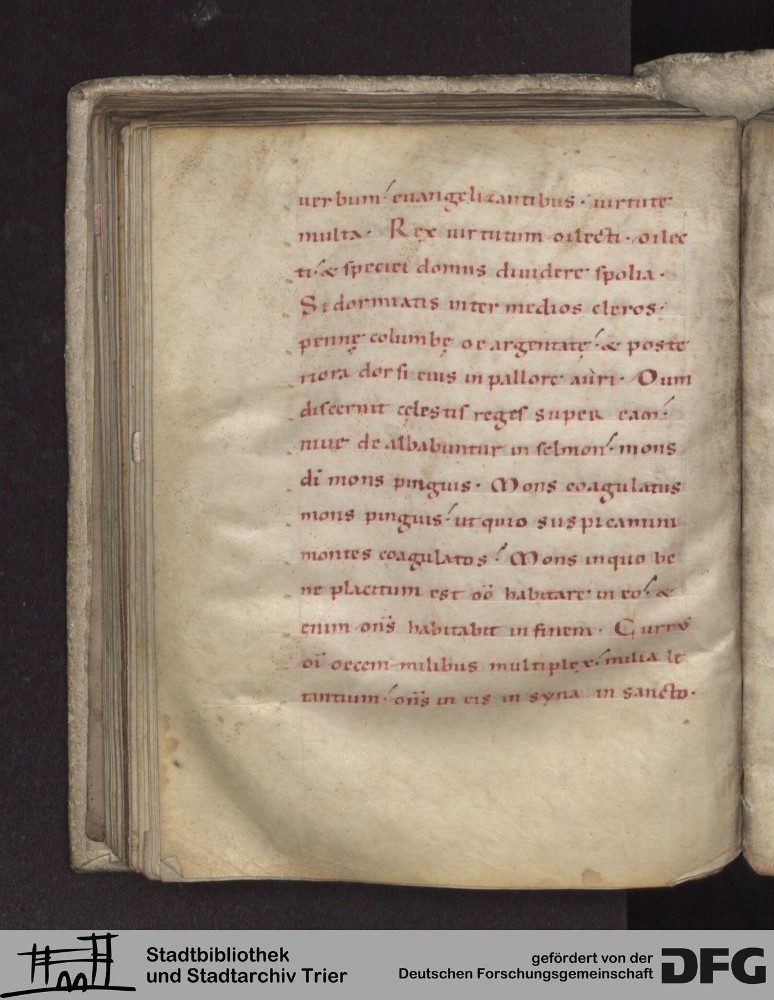 uerbum euangelizantibus. uirtute
multa. Rex uirtutum dilecti. dilec
ti. & speciei domus diuidere spolia.
Si dormiatis inter medios cleros.
pennę columbę de argentatę. & poste
riora dorsi eius in pallore auri. Dum
discernit cęlestis reges super eam.
niue de albabuntur in selmon. mons
dī mons pinguis. Mons coagulatus
mons pinguis. ut quid suspicamini
montes coagulatos. Mons in quo be
ne placitum est dō habitare in eo. &
enim dn̄s habitabit in finem. Currus
dī decem milibus multiplex. milia lę
tantium. dn̄s in eis in syna in sancto.
Stadtbibliothek
und Stadtarchiv Trier
gefördert von der
Deutschen Forschungsgemeinschaft
DFG